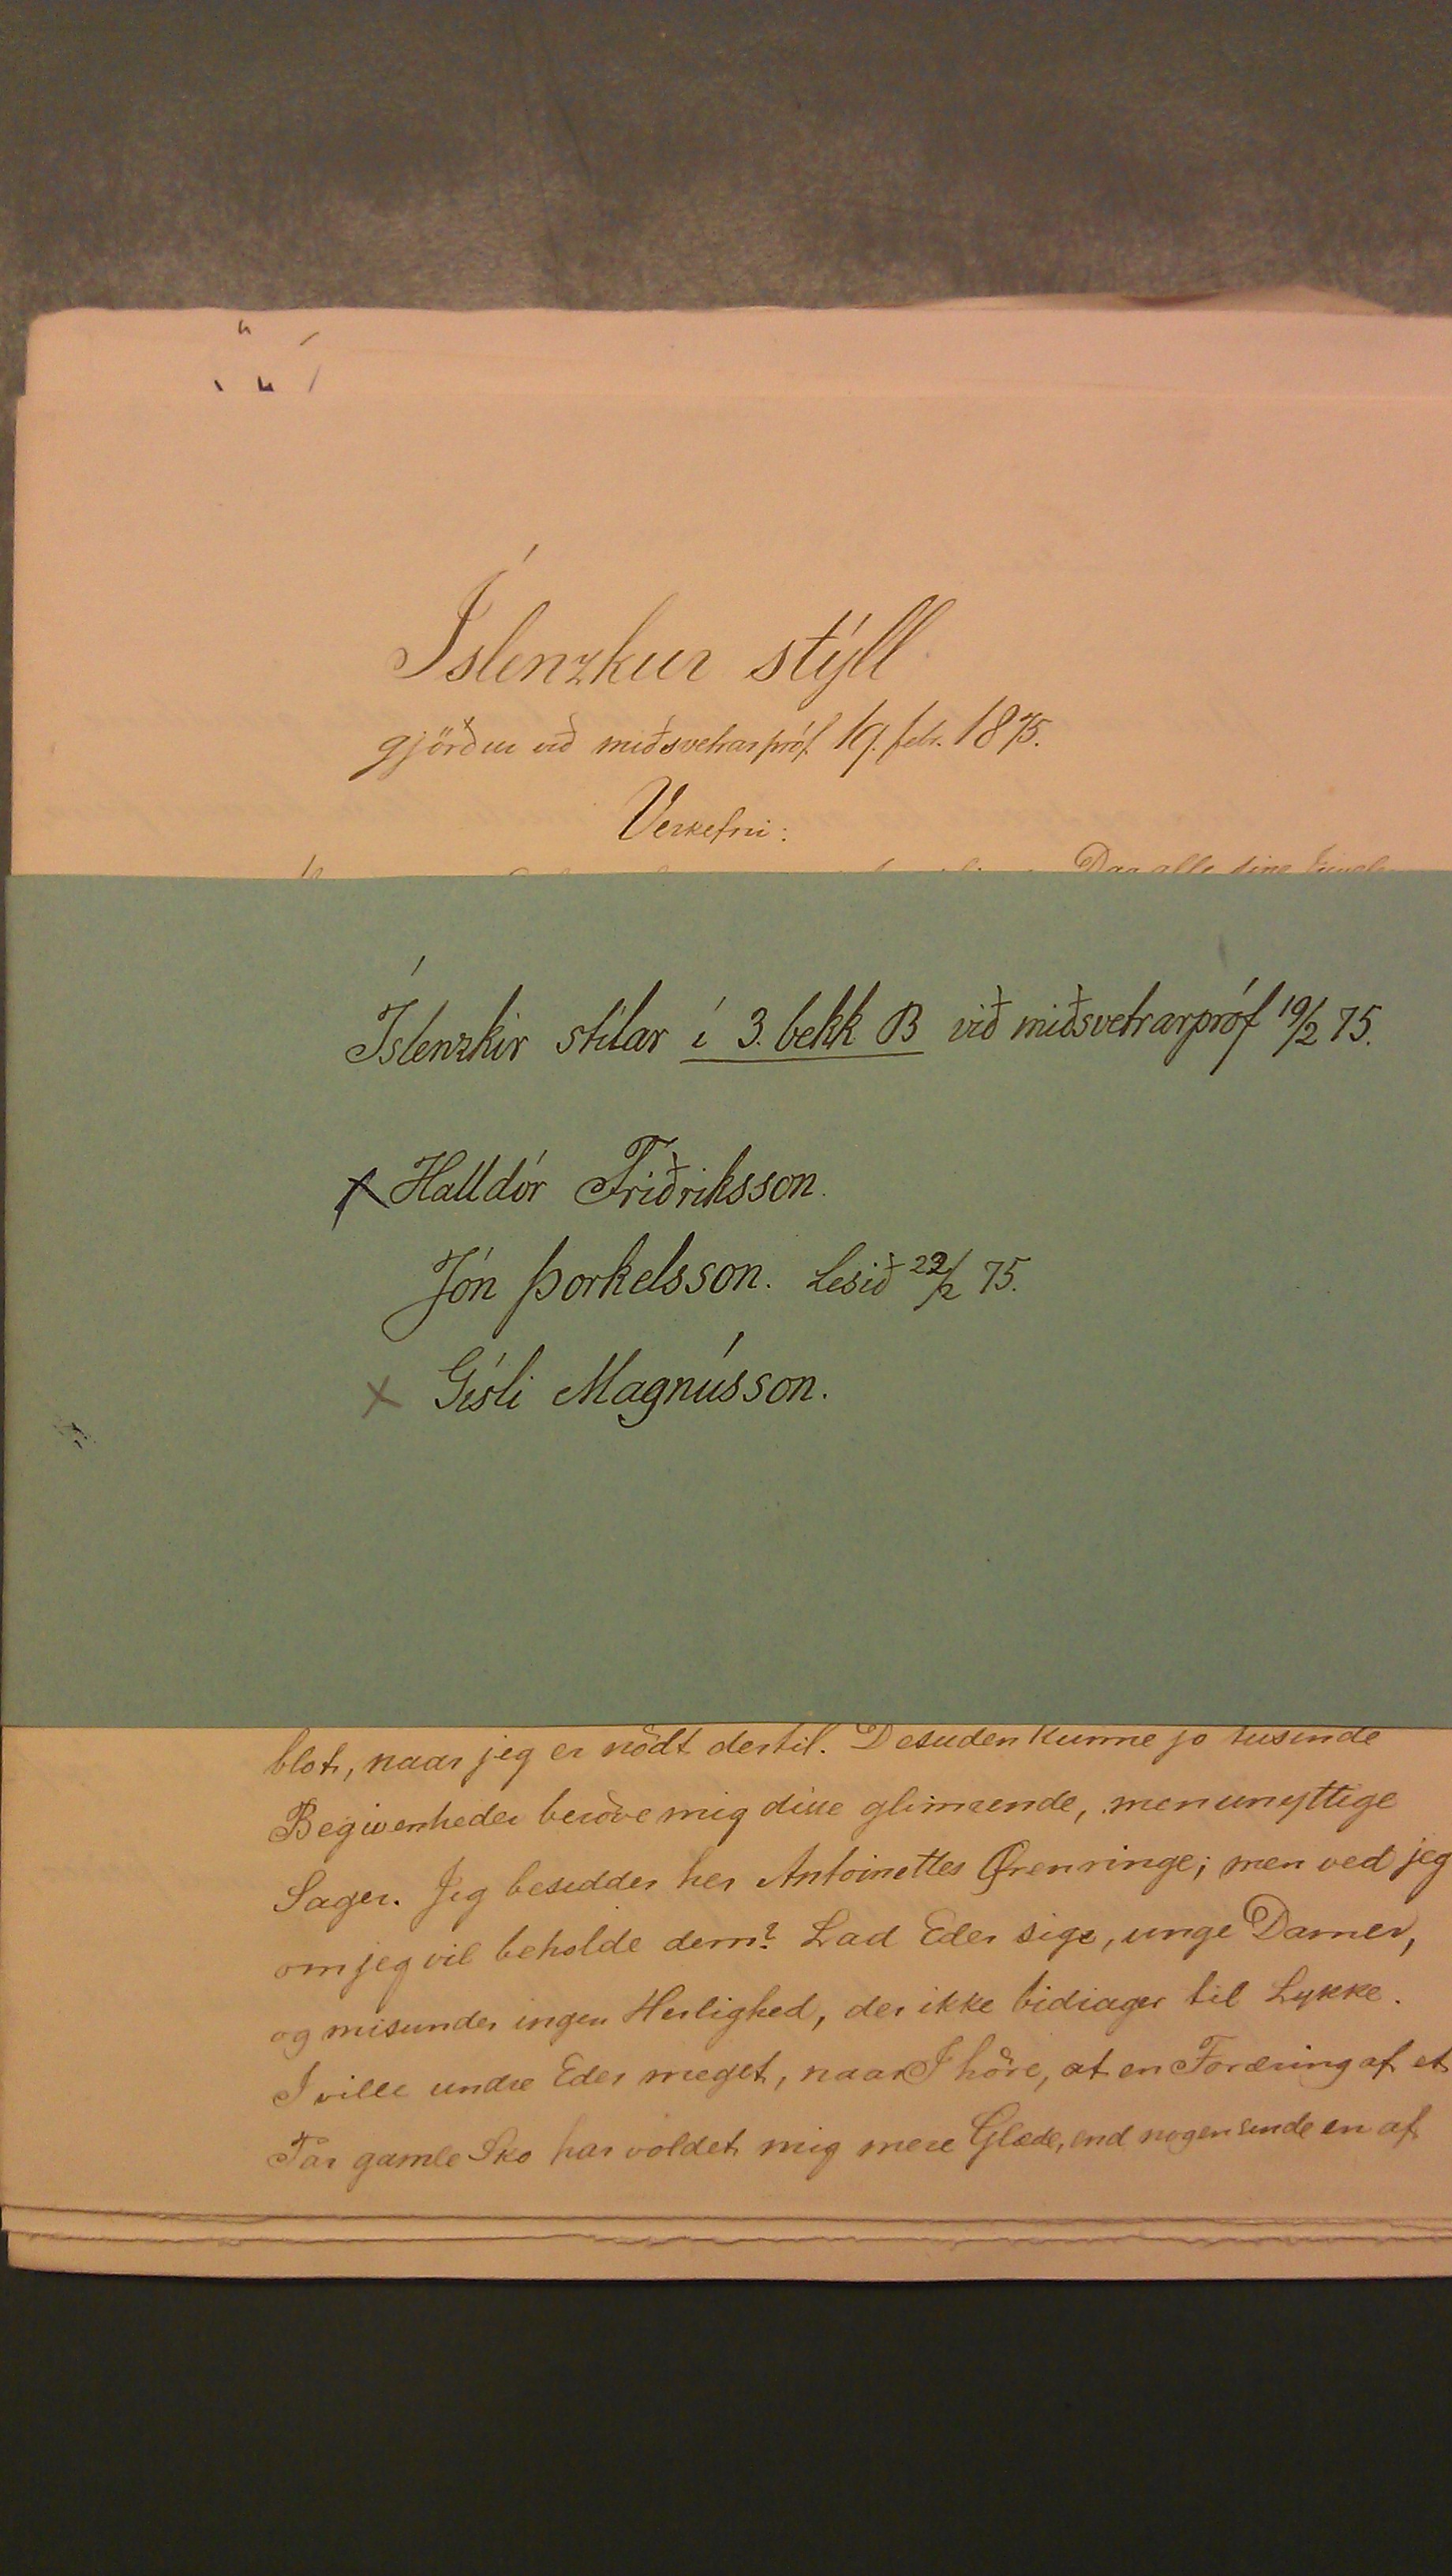 Íslenzkur stýll
gjörður við miðsvetrarpróf 19. febr. 1875.
Verkefni:
Íslenzkir stílar í 3. bekk B við miðsvetrarpróf 19/2 75.
x Halldór Friðriksson.
Jón Þorkelsson. Lesið 22/2 75.
x Gísli Magnússon.
blot, naar jeg er nödt dertil. Desuden kunne jo tusinde
Begivenheder beröve mig disse glimrende, men unyttige
Sager. Jeg besidder her Antoinettes Ørenringe; men ved jeg
om jeg vil beholde dem? Lad Eder sige, unge Damer,
og misunder ingen Herlighed, der ikke bidrager til Lykke.
I ville undre Eder meget, naar I höre, at en Foræring af et
Par gamle Sko har voldet mig mere Glæde, end nogensinde en af